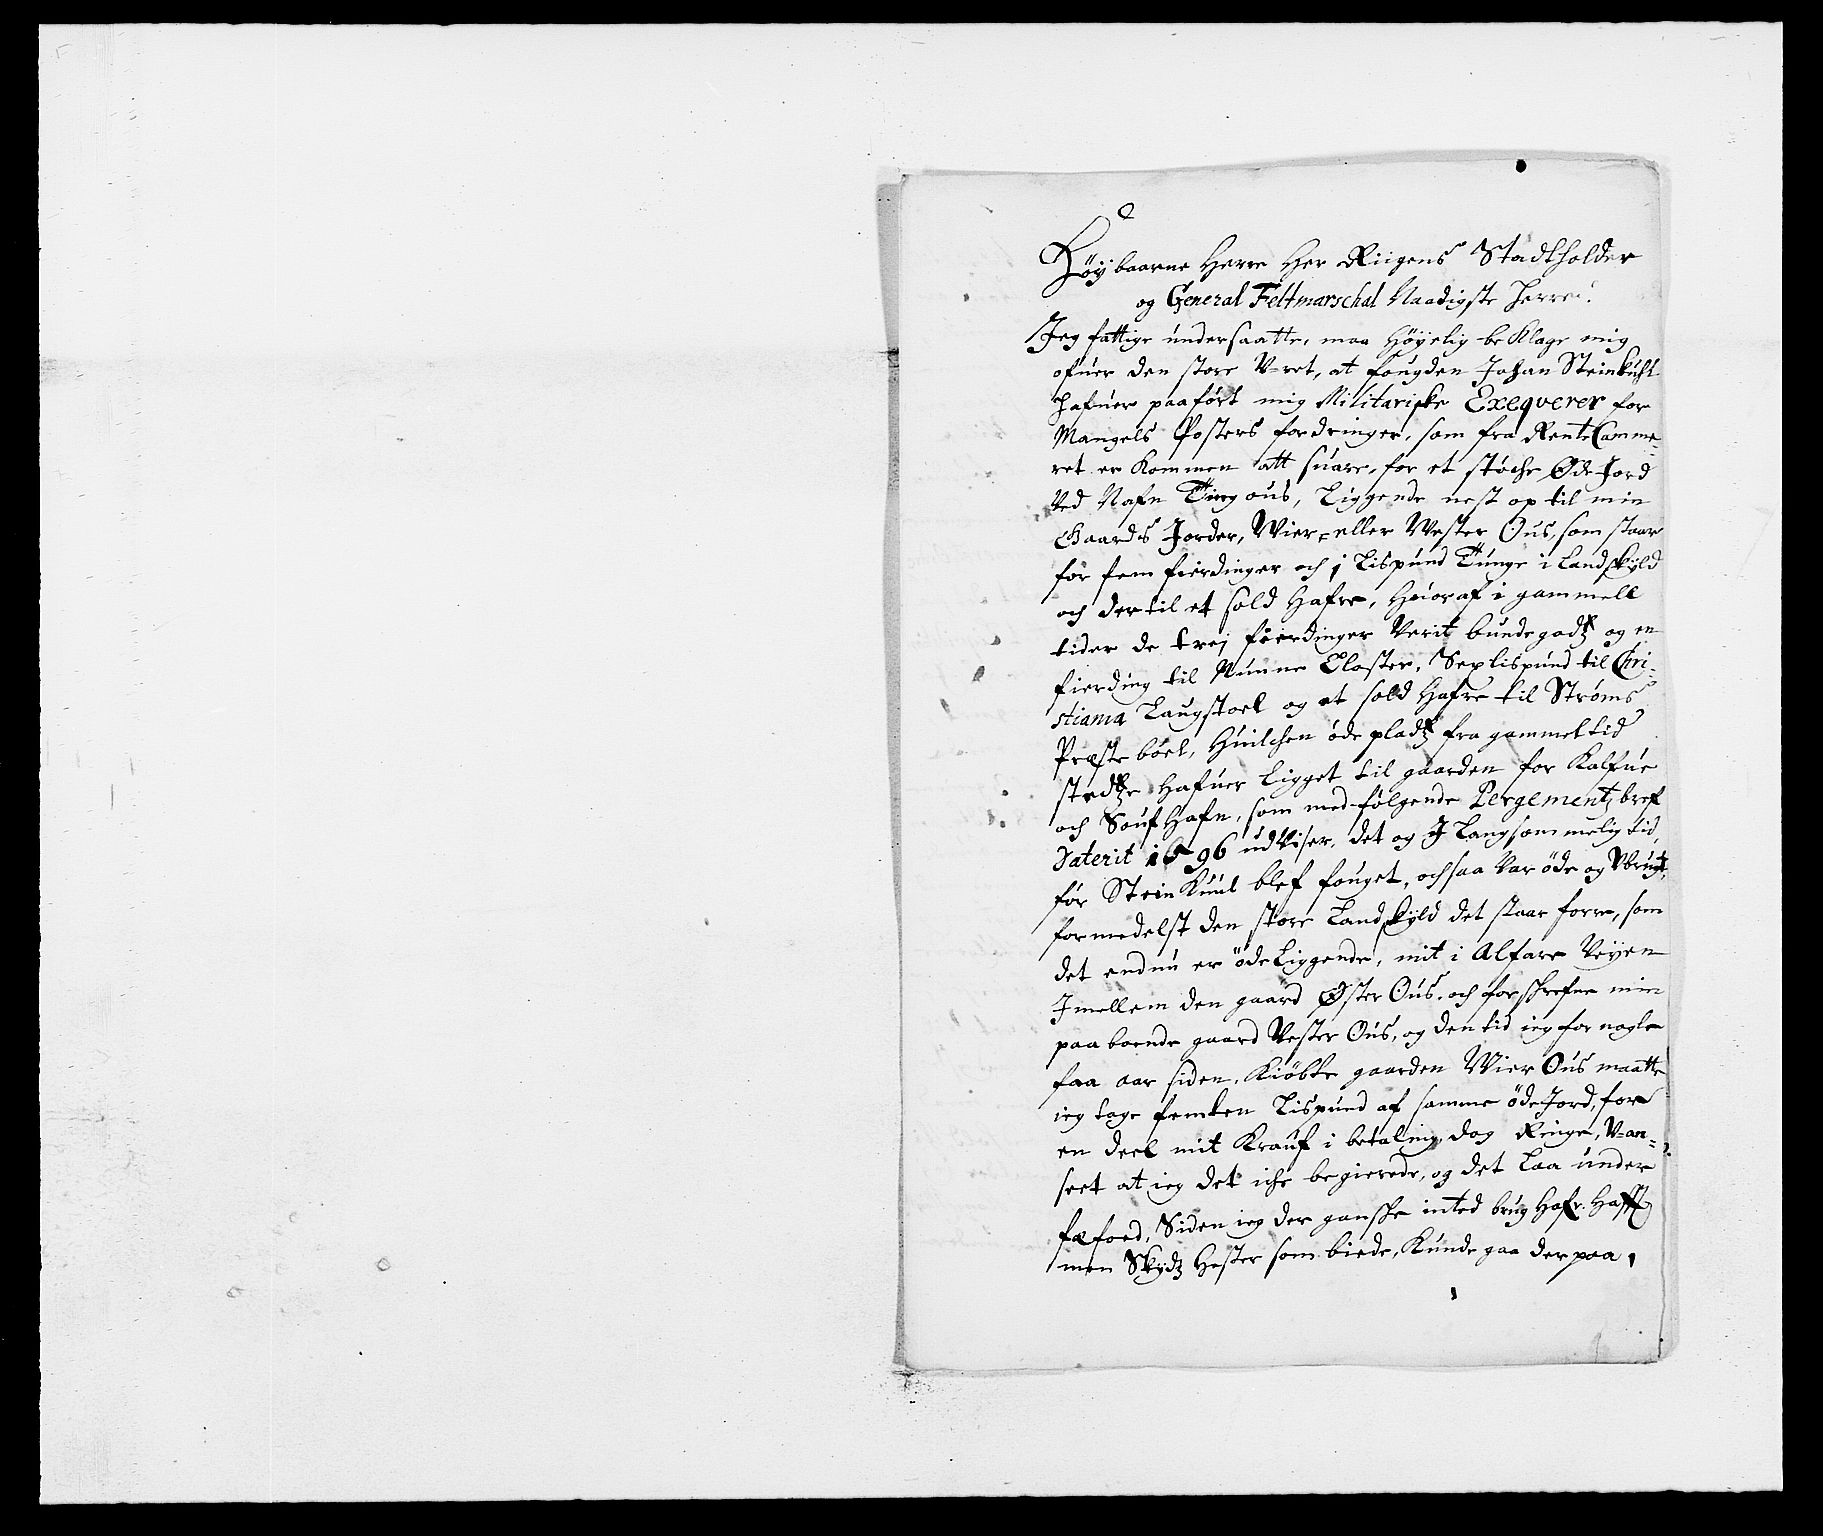 Høybaarne Herre Her Riigens Stadtholder
og General Feltmarschal Naadigste Herre.
Jeg fattige undersaatte, maa Høyelig be Klage mig
ofuer den store V-ret, at fougden Johan Steinkuhl
hafuer paaført mig Militariske Exeqverer for
Mangels Posters fordringer, som fra RenteCamme-
ret er Kommen att suare, for et støche Øde Jord
Ved Nafn Ting ous, Liggende nest op til min
Gaards Jorder, Wier- eller Wester Ous, som staar
for fem fierdinger och j Lispund Tunge i Landskyld
och dertil et sold Hafre, Huoraf i gammell
tider de trej fierdinger Verit bundegodtz og en
fierding til Nunne Closter, Sex lispund til Chri-
stiania Laugstoel og et sold Hafre til Strøms
Præste boel, Huilchen øde pladtz fra gammel tid
stedtze Hafuer Ligget til gaarden for Kalfue
och Souf Hafn, som medfølgende Pergementz bref
Daterit 1696 udViser, det og J Langsommelig tid,
før Stein Kuul blef fouget, och saa Var øde og Vbrugt,
formedelst den store Landskyld det staar forre, som
det endnu er øde Liggende, mit i Alfare Veyen
Jmellem den gaard Øster Ous, och forschrefne min
paa boende gaard Vester Ous, og den tid ieg for nogle
faa aar siden, Kiøbte gaarden Wier Ous maatte
ieg tage femten Lispund af samme øde Jord, for
en deel mit Krauf i betaling, dog Ringe, V-an-
seet at ieg det iche begierede, og det Laa under
fæfoed, Siden ieg der ganske inted brug Hafr. Hafft
men Skydtz Hester som biede, Kunde gaa der paa,